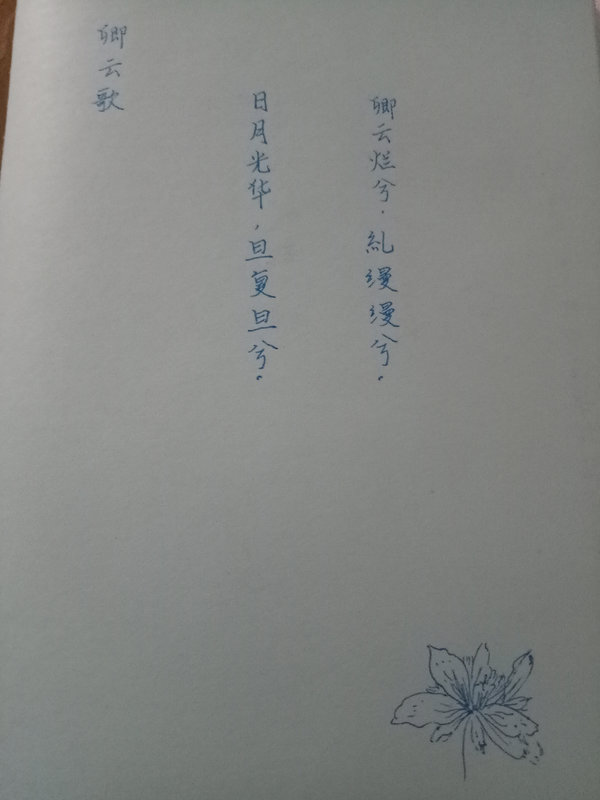 卿云烂兮，糺缦缦兮。
日月光华，旦复旦兮。
卿云歌